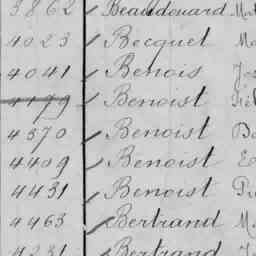 3862 Beaudouard
4023 Becquet
4041 Benois
4199 Benoist
4370 Benoist
4409 Benoist
4431 Benoist
4463 Bertrand
4231 Bertrand